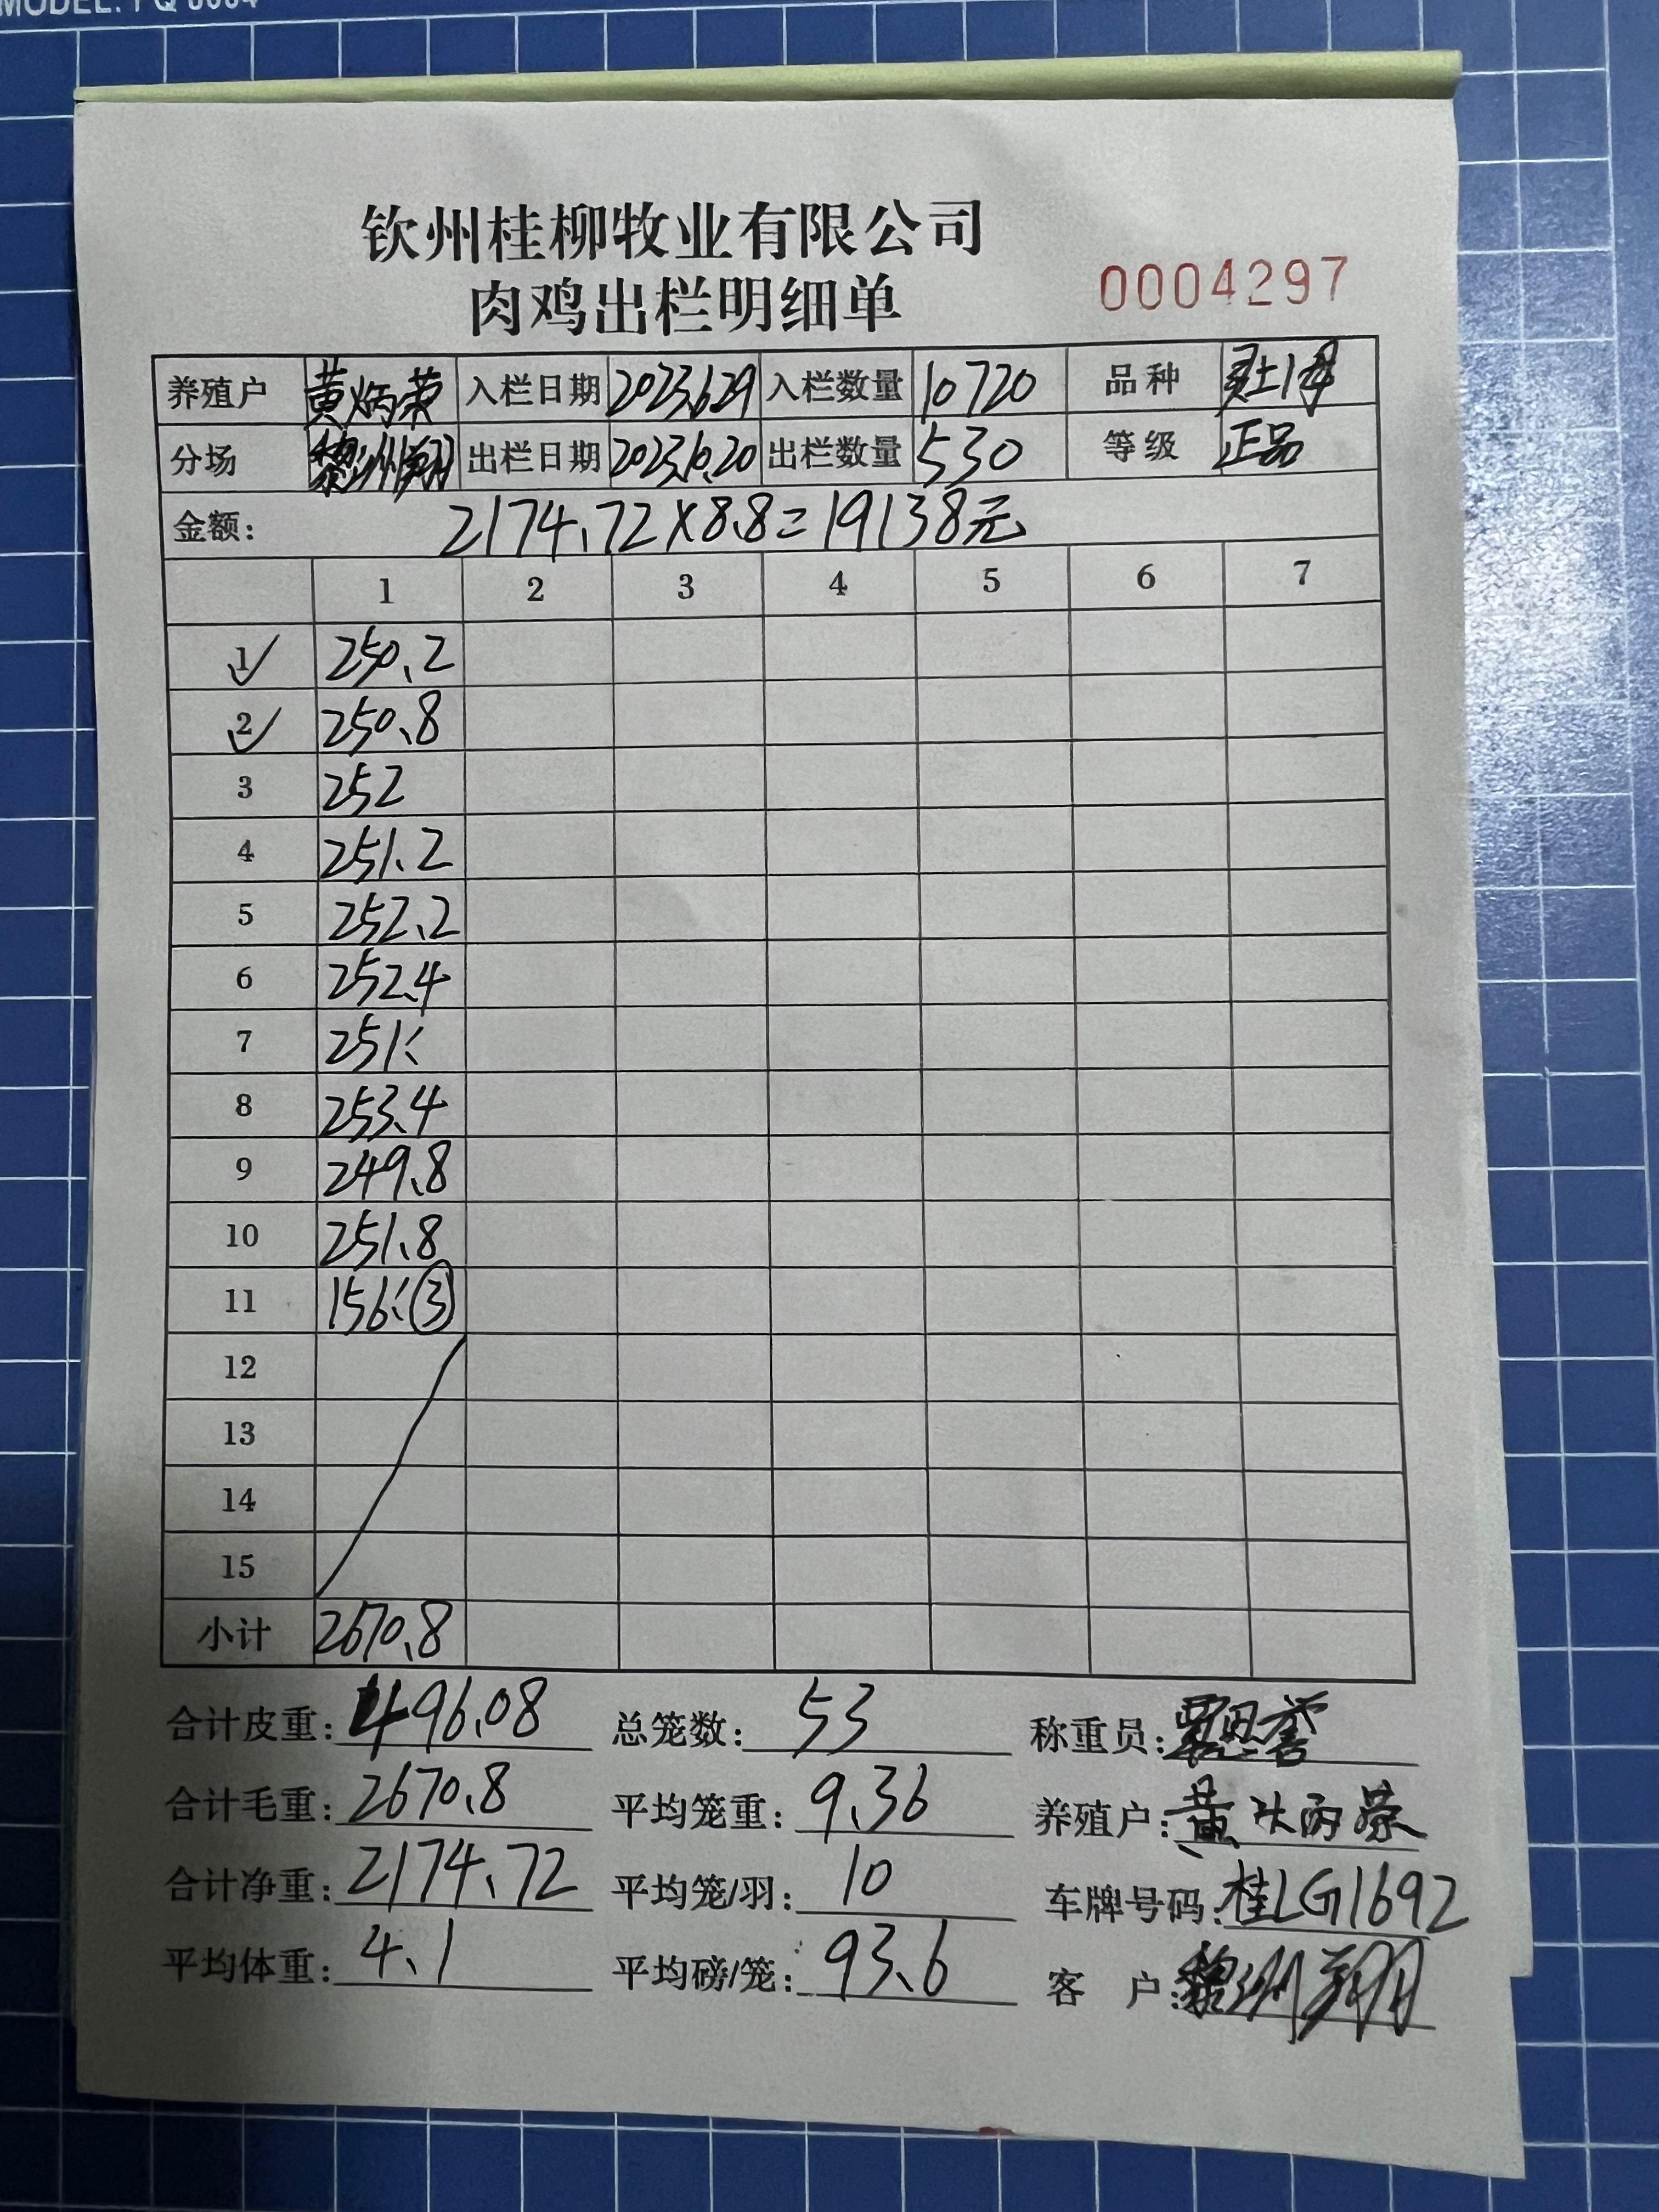 MODEL: PQ
钦州桂柳牧业有限公司
肉鸡出栏明细单
0004297
养殖户 黄炳荣 入栏日期 2023.6.29 入栏数量 10720 品种
分场 黎洲翔 出栏日期 2023.10.20 出栏数量 530 等级 正品
金额: 2174.72×8.8=19138元
1 2 3 4 5 6 7
1 ✓ 250.2
2 ✓ 250.8
3 252
4 251.2
5 252.2
6 252.4
7 251
8 253.4
9 249.8
10 251.8
11 156 ③
12
13
14
15
小计 2670.8
合计皮重: 496.08 总笼数: 53 称重员:
合计毛重: 2670.8 平均笼重: 9.36 养殖户: 黄炳荣
合计净重: 2174.72 平均笼/羽: 10 车牌号码: 桂LG1692
平均体重: 4.1 平均磅/笼: 93.6 客 户: 黎洲翔